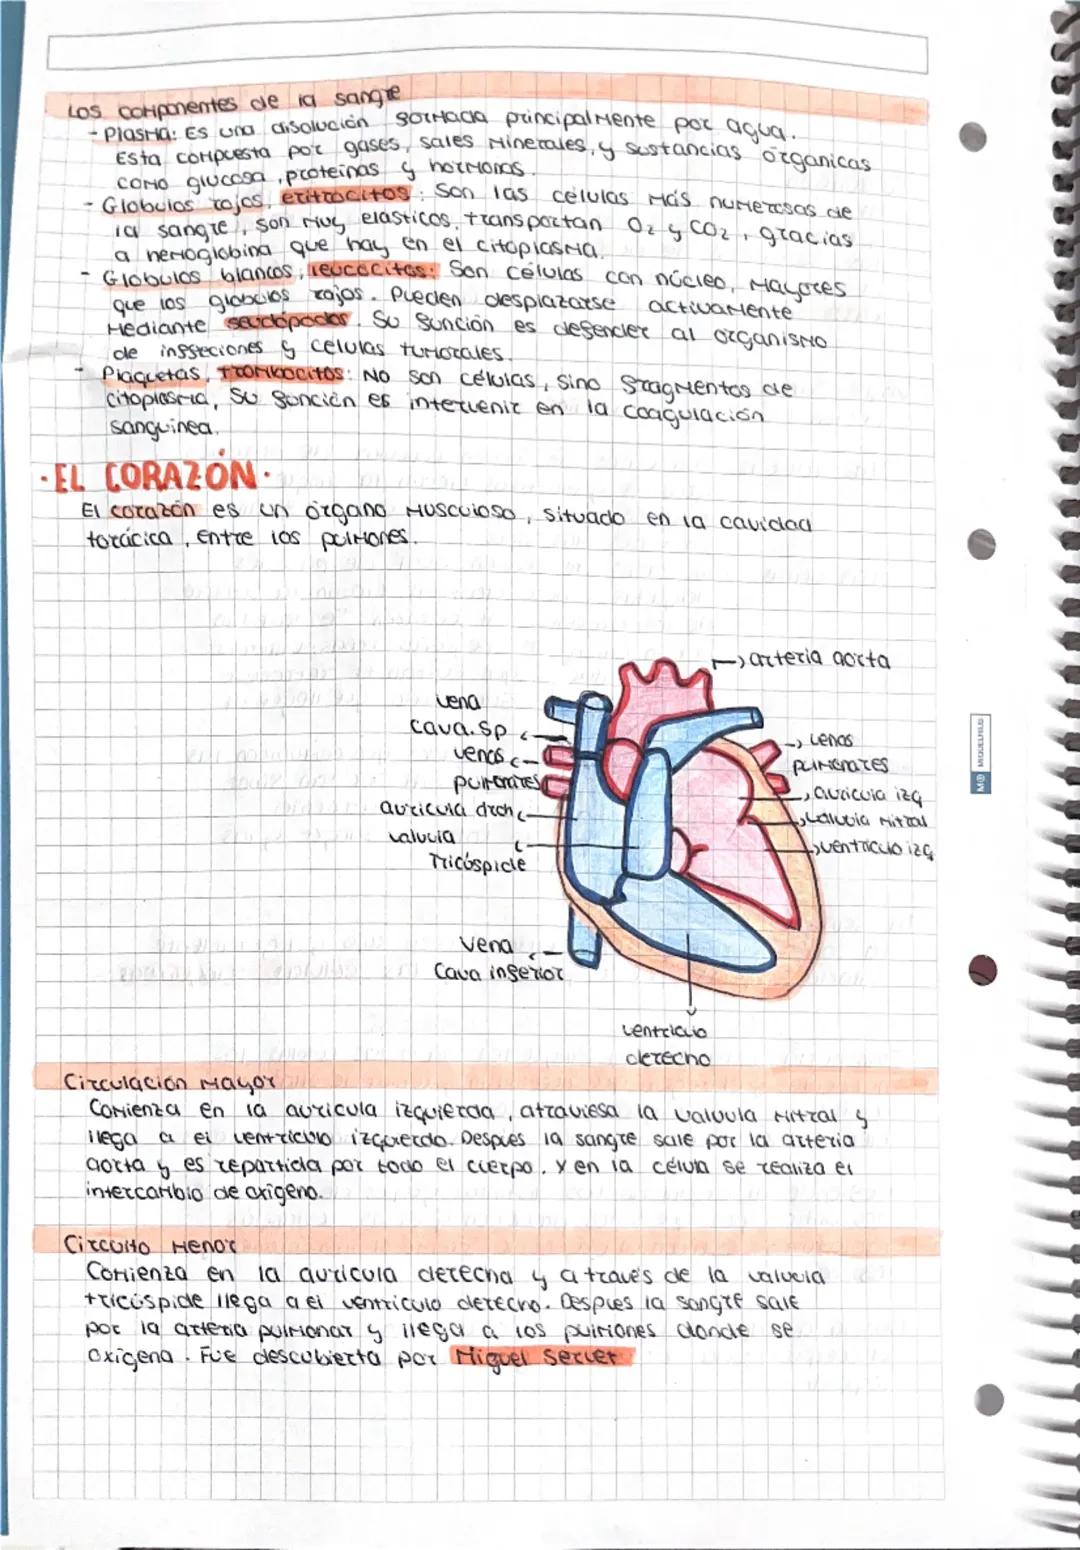 Los componentes de la sangre
- Plasma: Es una disolución formada principalmente por agua.
Esta compuesta por gases, sales minerales, y sustancias órganicas
como glucosa, proteinas y hormonas.
- Globulos rojos, eritrocitos: Son las celulas más numerosas de
la sangre, son muy elásticos, transportan O₂ y CO₂, gracias
a hemoglobina que hay en el citoplasma.
- Globulos blancos, leucocitos: Son células con núcleo, mayores
que los globulos rojos. Pueden desplazarse activamente
mediante seudópodos. Su función es defender al organismo
de inffeciones y celulas tumorales.
- Plaquetas, trombocitos: No son células, sino fragmentos de
citoplasma, su función es intervenir en la coagulación
sanguinea.
·EL CORAZÓN·
El corazón es un órgano musculoso, situado en la cavidad
torácica, entre los pulmones.
arteria aorta
vena
cava.sp
venas
pulmonares
auricula drch
valvula
Tricúspide
vena
Cava inferior
venas
pulmonares
auricula izq
valvula mitral
ventriculo izq
ventriculo
derecho
Circulación mayor
Comienza en la auricula izquierda, atraviesa la valvula mitral y
llega a el ventriculo izquierdo. Despues la sangre sale por la arteria
aorta y es repartida por todo el cuerpo. Y en la célula se realiza el
intercambio de oxigeno.
Circuito menor
Comienza en la auricula derecha y a través de la valvula
tricúspide llega a el ventriculo derecho. Despues la sangre sale
por la arteria pulmonar y llega a los pulmones donde se
oxigena. Fue descubierta por Miguel Server
MIQUELRIUS